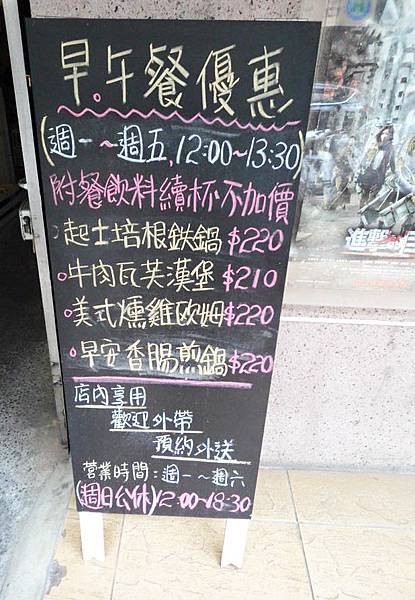 早.午餐優惠
(週一～週五,12:00~13:30)
附餐飲料續杯不加價
•起士培根鉄鍋$220
•牛肉瓦芙漢堡$210
•美式燻維歐姆$220
•早安香腸煎鍋$220
店內享用
歡迎外帶
預約外送
營業時間:週一～週六
(週日公休)12:00~18:30
進擊